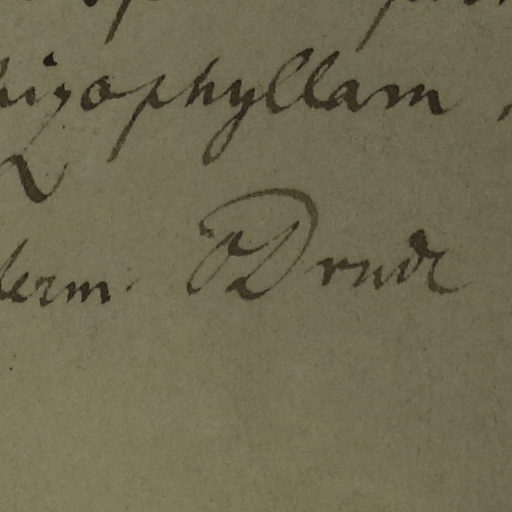 hizophyllam,
derm. O Drude